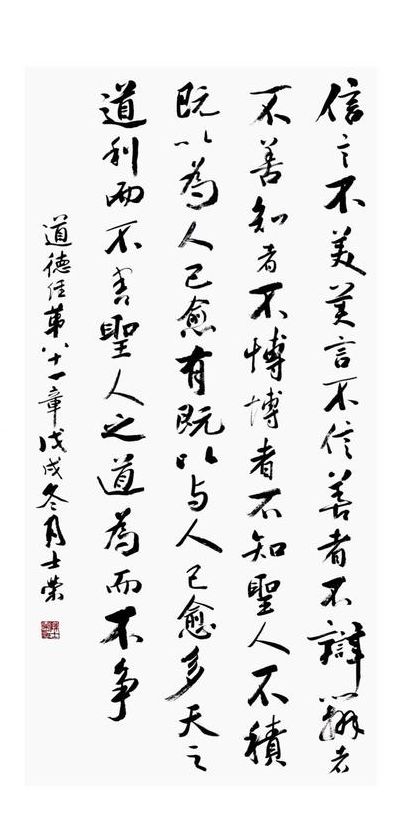 信言不美美言不信善者不辯辯者
不善知者不博博者不知聖人不積
既以為人己愈有既以与人己愈多天之
道利而不害聖人之道為而不争
道德经第八十一章戊戌冬月士榮